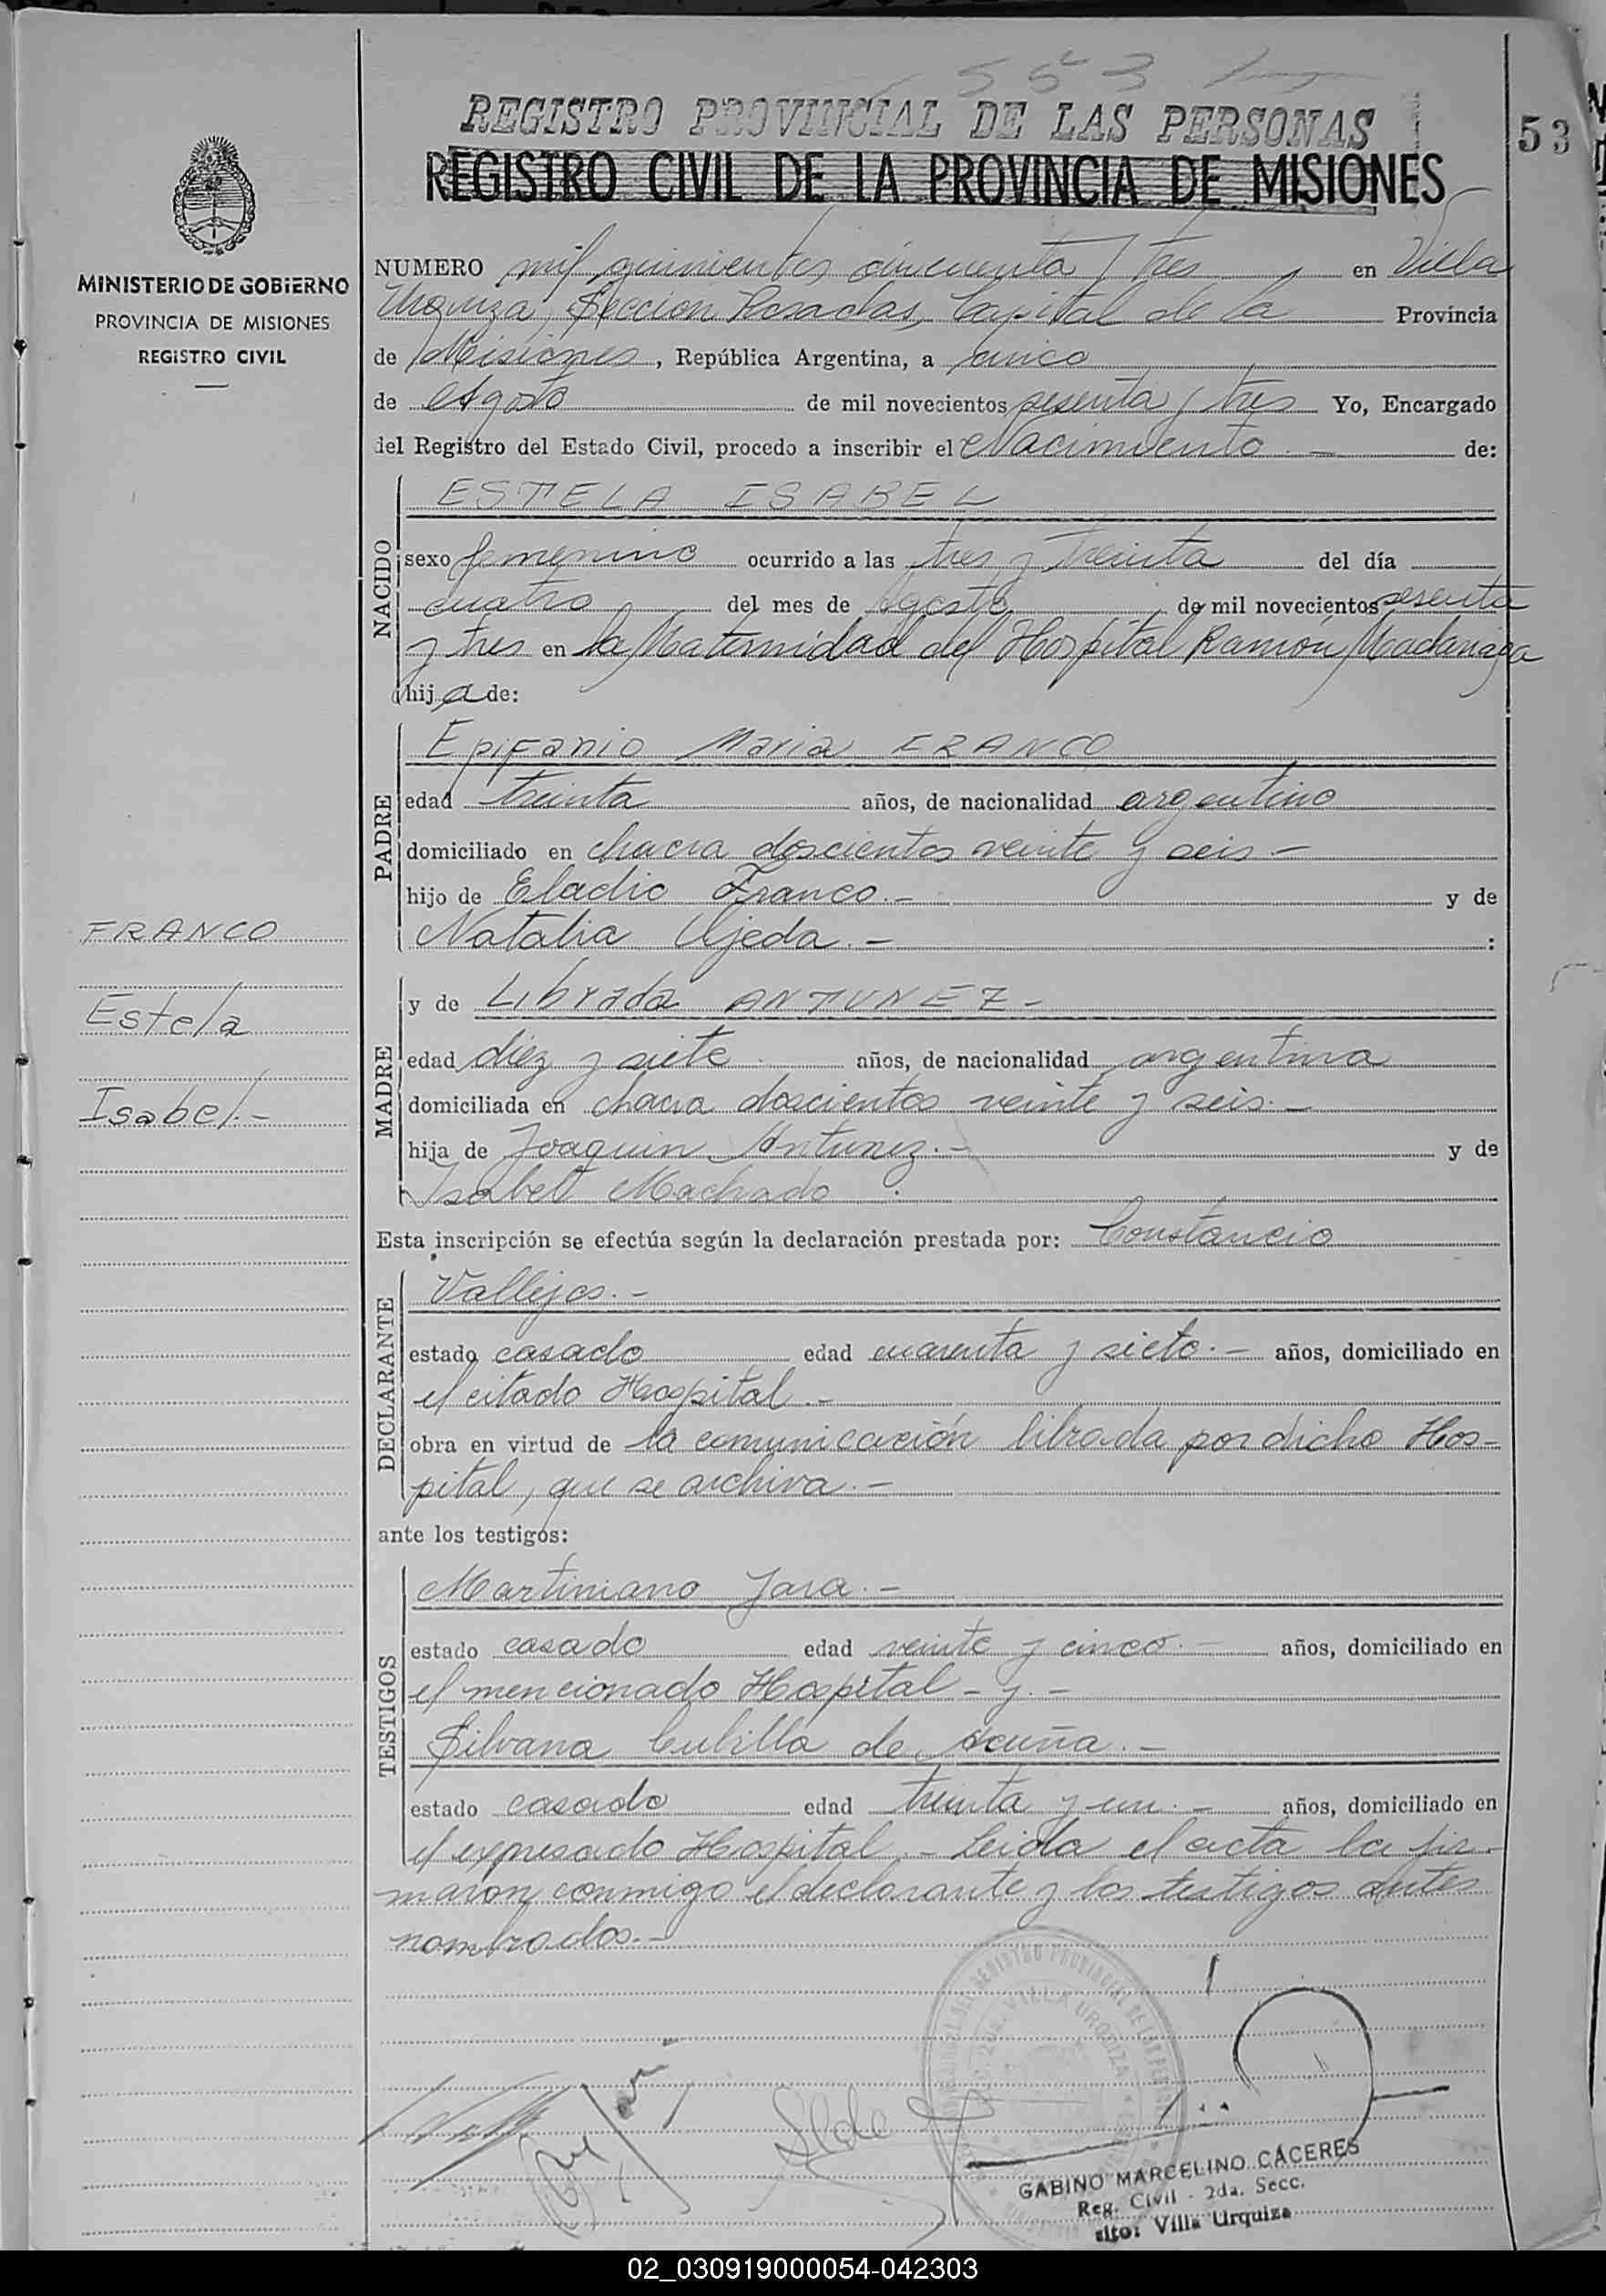 553
REGISTRO PROVINCIAL DE LAS PERSONAS
53
REGISTRO CIVIL DE LA PROVINCIA DE MISIONES
MINISTERIO DE GOBIERNO
PROVINCIA DE MISIONES
REGISTRO CIVIL
NUMERO mil quinientos cincuenta y tres en Villa
Urquiza, Sección Posadas, Capital de la Provincia
de Misiones, República Argentina, a cinco
de Agosto de mil novecientos sesenta y tres Yo, Encargado
del Registro del Estado Civil, procedo a inscribir el Nacimiento.- de:
NACIDO
ESTELA ISABEL
sexo femenino ocurrido a las tres y treinta del día
cuatro del mes de Agosto de mil novecientos sesenta
y tres en la Maternidad del Hospital Ramón Madariaga
hija de:
PADRE
Epifanio Maria FRANCO
edad treinta años, de nacionalidad argentino
domiciliado en chacra doscientos veinte y seis.-
hijo de Eladio Franco.- y de
Natalia Ojeda.- :
FRANCO
Estela
Isabel.-
MADRE
y de Librada ANTUNEZ-
edad diez y siete años, de nacionalidad argentina
domiciliada en chacra doscientos veinte y seis.-
hija de Joaquin Antunez.- y de
Isabel Machado.
Esta inscripción se efectúa según la declaración prestada por: Constancio
DECLARANTE
Vallejos.-
estado casado edad cuarenta y siete.- años, domiciliado en
el citado Hospital.-
obra en virtud de la comunicación librada por dicho Hos-
pital, que se archiva.-
ante los testigos:
TESTIGOS
Martiniano Jara.-
estado casado edad veinte y cinco.- años, domiciliado en
el mencionado Hospital - y.-
Silvana Cubilla de Acuña.-
estado casado edad treinta y un.- años, domiciliado en
el expresado Hospital.- Leida el acta la fir-
maron conmigo el declarante y los testigos antes
nombrados.-
VILLA URQUIZA
GABINO MARCELINO CACERES
Reg. Civil - 2da. Secc.
sito: Villa Urquiza
02_030919000054-042303